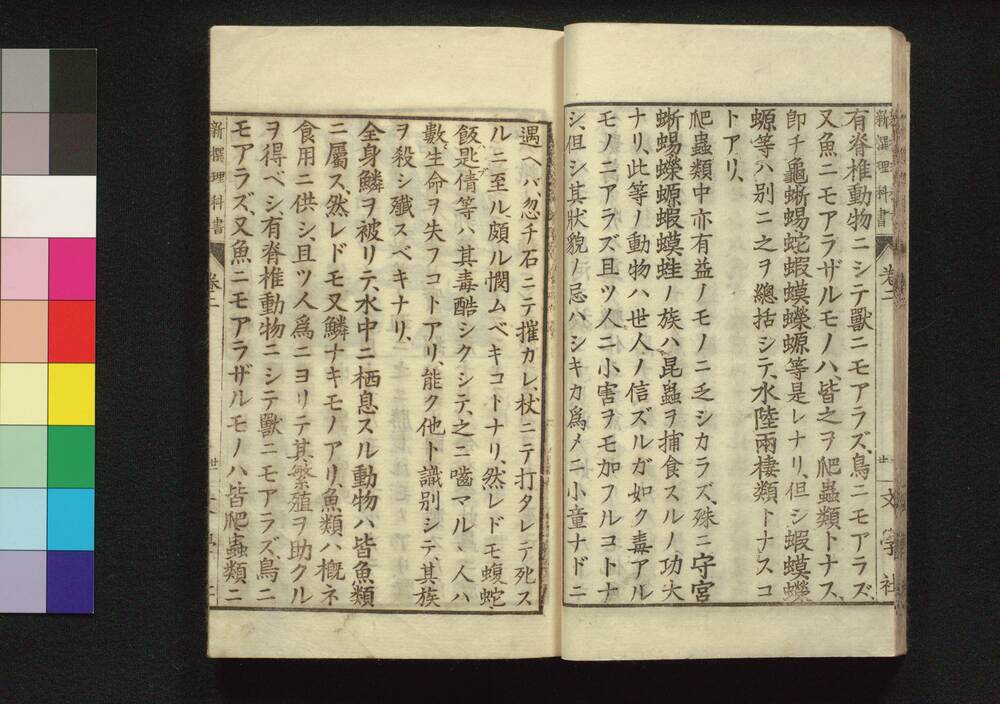 新撰理科書 卷二 廿一 文學社
有脊椎動物ニシテ獸ニモアラズ、鳥ニモアラズ、
又魚ニモアラザルモノハ皆之ヲ爬蟲類トナス、
卽チ龜蜥蜴蛇蝦蟆蠑螈等是レナリ、但シ蝦蟆蠑
螈等ハ別ニ之ヲ總括シテ、水陸兩棲類トナスコ
トアリ、
爬蟲類中亦有益ノモノニ乏シカラズ、殊ニ守宮
蜥蜴蠑螈蝦蟆蛙ノ族ハ昆蟲ヲ捕食スルノ功大
ナリ、此等ノ動物ハ世人ノ信ズルガ如ク毒アル
モノニアラズ且ツ人ニ小害ヲモ加フルコトナ
シ、但シ其狀貌ノ忌ハシキカ爲メニ小童ナドニ
遇ヘバ、忽チ石ニテ摧カレ、杖ニテ打タレテ死ス
ルニ至ル、頗ル憫ムベキコトナリ、然レドモ蝮蛇
飯匙倩等ハ其毒酷シクシテ、之ニ嚙マルヽ人ハ
數生命ヲ失フコトアリ、能ク他ト識別シテ、其族
ヲ殺シ殲スベキナリ、
全身鱗ヲ被リテ、水中ニ栖息スル動物ハ皆魚類
ニ屬ス、然レドモ又鱗ナキモノアリ、魚類ハ槪ネ
食用ニ供シ、且ツ人爲ニヨリテ其繁殖ヲ助クル
ヲ得ベシ、有脊椎動物ニシテ獸ニモアラズ、鳥ニ
モアラズ、又魚ニモアラザルモノハ皆爬蟲類ニ
新撰理科書 卷二 廿